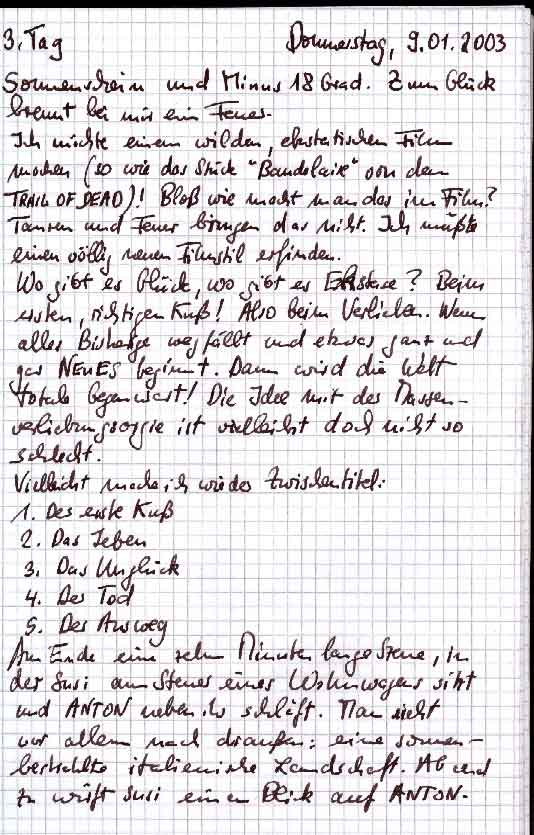 3. Tag Donnerstag, 9.01.2003
Sonnenschein und Minus 18 Grad. Zum Glück
brennt bei mir ein Feuer.
Ich möchte einen wilden, ekstatischen Film
machen (so wie das Stück "Baudelaire" von den
TRAIL OF DEAD)! Bloß wie macht man das im Film?
Tanzen und Feuer bringen das nicht. Ich müßte
einen völlig neuen Filmstil erfinden.
Wo gibt es Glück, wo gibt es Ekstase? Beim
ersten, richtigen Kuß! Also beim Verlieben. Wenn
alles Bisherige wegfällt und etwas ganz und
gar NEUES beginnt. Dann wird die Welt
totale Gegenwart! Die Idee mit der Massen-
verliebungsorgie ist vielleicht doch nicht so
schlecht.
Vielleicht mache ich wieder Zwischentitel:
1. Der erste Kuß
2. Das Leben
3. Das Unglück
4. Der Tod
5. Der Ausweg
Am Ende eine zehn Minuten lange Szene, in
der Susi am Steuer eines Wohnwagens sitzt
und ANTON neben ihr schläft. Man sieht
vor allem nach draußen: eine sonnen-
bestrahlte italienische Landschaft. Ab und
zu wirft Susi einen Blick auf ANTON.